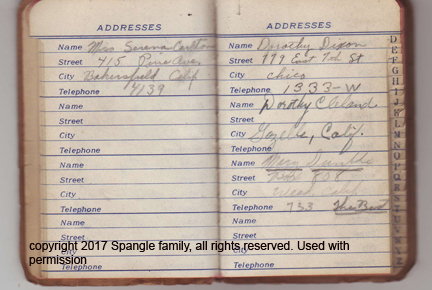 ADDRESSES
Name Miss Serena Carlton
Street 415 Pine Ave.
City Bakersfield Calif
Telephone 4139
Name
Street
City
Telephone
Name
Street
City
Telephone
Name
Street
City
Telephone
ADDRESSES
Name Dorothy Dixon
Street 779 East 7th St
City Chico
Telephone 1333-W
Name Dorothy Cleland
Street
City Gazelle, Calif.
Telephone
Name
Street
City Calif
Telephone 733
Name
Street
City
Telephone
D
E
F
G
H
I
J
K
L
M
N
O
P
Q
R
S
T
copyright 2017 Spangle family, all rights reserved. Used with
permission